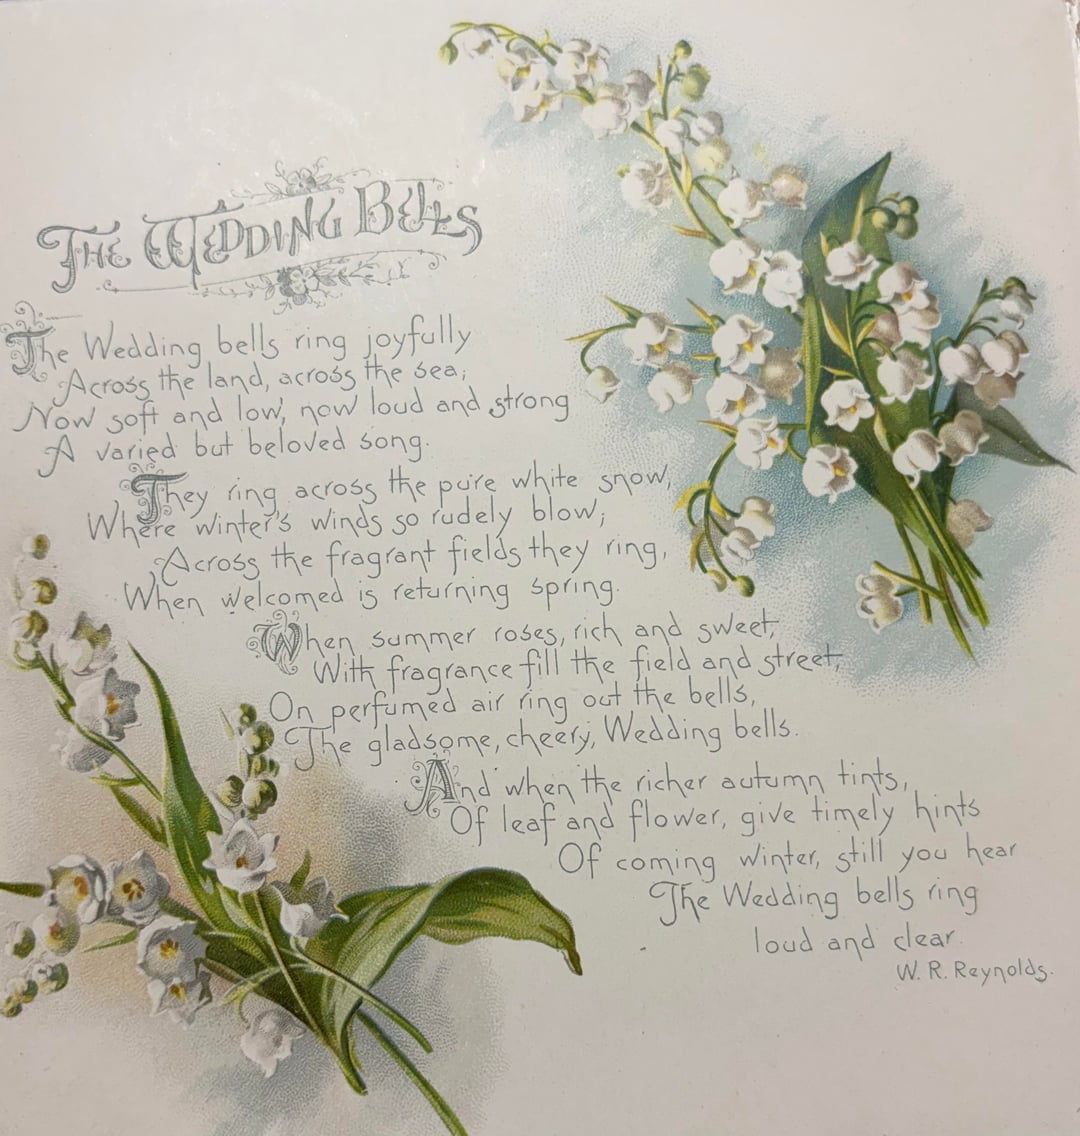 The Wedding Bells
The Wedding bells ring joyfully
Across the land, across the sea;
Now soft and low, now loud and strong
A varied but beloved song.
They ring across the pure white snow,
Where winter's winds so rudely blow;
Across the fragrant fields they ring,
When welcomed is returning spring.
When summer roses, rich and sweet,
With fragrance fill the field and street,
On perfumed air ring out the bells,
The gladsome, cheery, Wedding bells.
And when the richer autumn tints,
Of leaf and flower, give timely hints
Of coming winter, still you hear
The Wedding bells ring
loud and clear.
W. R. Reynolds.